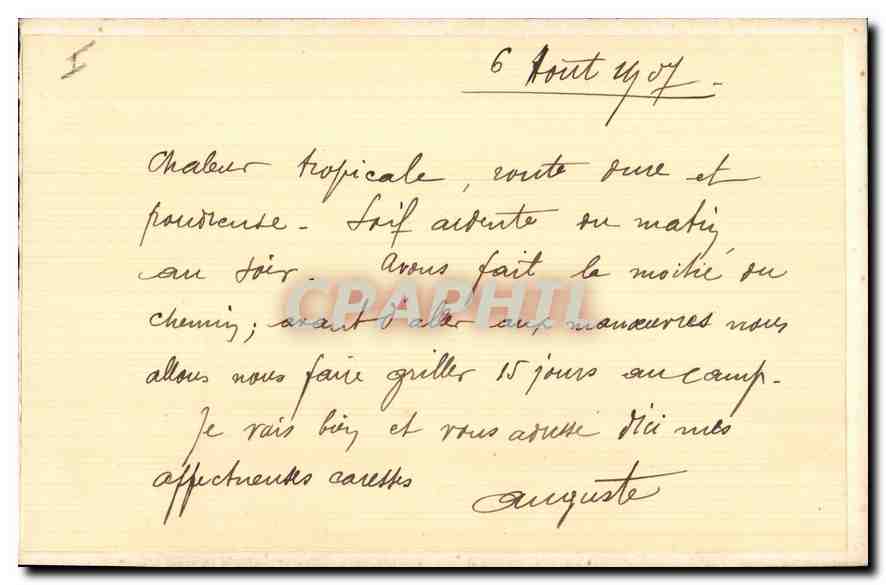 I
6 Aout 1907.
Chaleur tropicale, route dure et
poudreuse - Soif ardente du matin
au soir. Avons fait la moitié du
CPAPHIL
chemin; avant d'aller aux manœuvres nous
allons nous faire griller 15 jours au camp.
Je vais bien et vous adresse d'ici mes
affectueuses caresses
Auguste